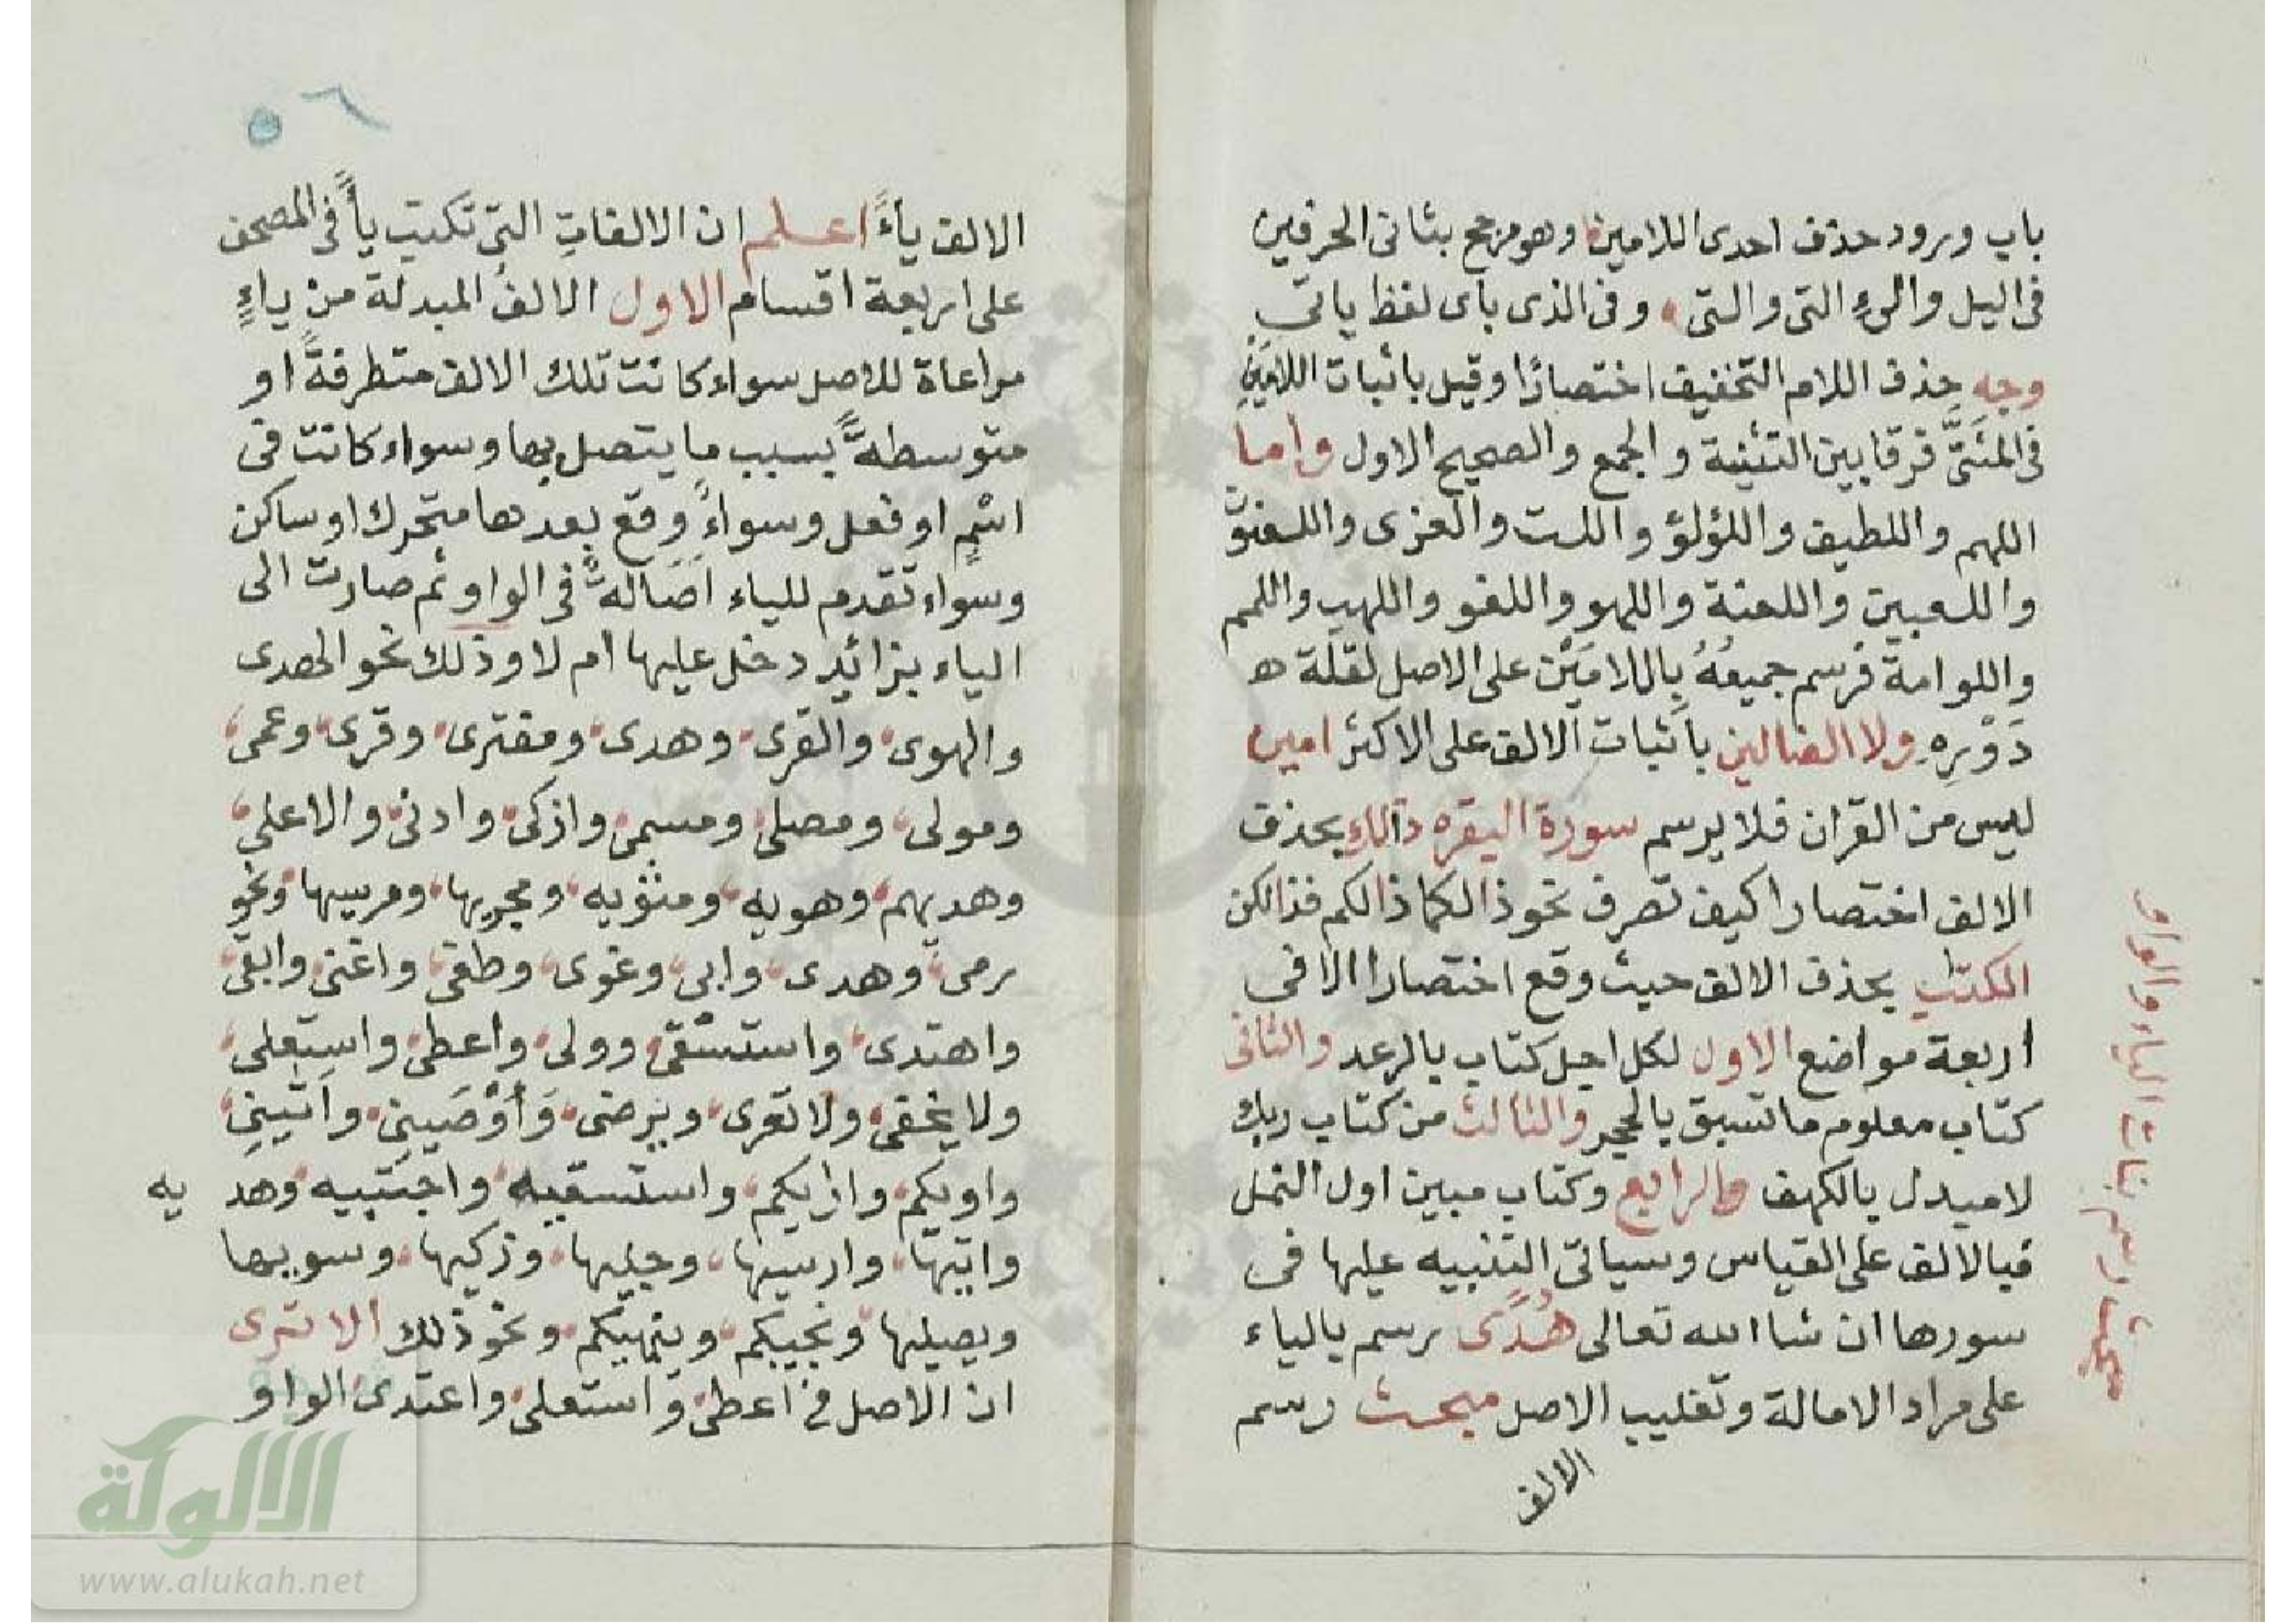 باب ورود حذف احدى اللامين وهو مرجح بثانى الحرفين
فى اليل والىء التى والتى وفى الذى باى لفظ ياتى
وجه حذف اللام التخفيف اختصارًا وقيل باثبات اللامين
فى المثنَّى فرقا بين التثنية والجمع والصحيح الاول واما
اللهم واللطيف واللؤلؤ واللت والعزى واللغو
واللعبين واللعنة واللهو واللغو واللهب واللمم
واللوامة فرسم جميعهُ باللامَيْن على الاصل لقلة
دَوْرِهِ ولا الضالين باثبات الالف على الاكثر امين
ليس من القران فلا يرسم سورة البقره ذالك بحذف
الالف اختصارا كيف تصرف نحو ذالكما ذالكم فذالكن
الكتٰب بحذف الالف حيث وقع اختصارا الا فى
اربعة مواضع الاول لكل اجل كتاب بالرعد والثانى
كتاب معلوم ما تسبق بالحجر والثالث من كتاب ربك
لا مبدل بالكهف والرابع وكتاب مبين اول النمل
فبالالف على القياس وسياتى التنبيه عليها فى
سورها ان شا الله تعالى هُدًى رسم بالياء
على مراد الامالة وتغليب الاصل مبحث رسم
الالف
مبحث رسم بنات الياء والواو
٥٦
الالف ياءً اعلم ان الالفاتِ التى تكتب ياً فى المصحف
على اربعة اقسام الاول الالفُ المبدلة من ياءٍ
مراعاة للاصل سواء كانت تلك الالف متطرفةً او
متوسطةً بسبب ما يتصل بها وسواء كانت فى
اسْمٍ او فعل وسواءً وقع بعدها متحرك او ساكن
وسواء تقدم للياء اَصَالةً فى الواو ثم صارت الى
الياء بزائد دخل عليها ام لا وذلك نحو الهدى
والهوى والقرى وهدى ومفترى وقرى وعمى
ومولى ومصلى ومسمى وازكى وادنى والاعلى
وهديهم وهويه ومثويه ومجريها ومرسيها ونحو
رمى وهدى وابى وغوى وطغى واغنى وابقى
واهتدى واستسْقى وولى واعطى واستعلى
ولا يخفى ولا تعرى ويرضى وَأوْصَينِى واَتينِى
واويكم واريكم واستسقيه واجتبيه وهد يه
واتيها وارسيها وجليها وزكيها وسويها
ويصليها ونجيكم وينهيكم ونحو ذلك الا ترى
ان الاصل فى اعطى واستعلى واعتدى الواو
الألوكة
www.alukah.net